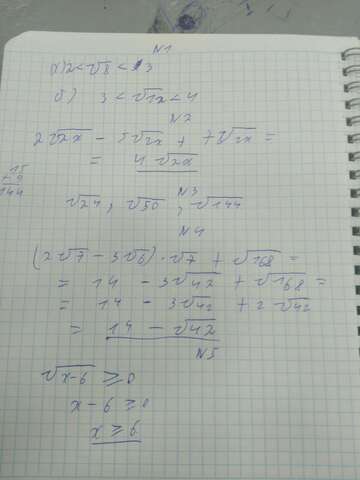 N1
а) 2 < √8 < 3
б) 3 < √12 < 4
N2
2√2x − 5√2x + 7√2x =
= 4√2x
15
+ 9
144
N3
√24 ; √50 ; √144
N4
(2√7 − 3√6) · √7 + √168 =
= 14 − 3√42 + √168 =
= 14 − 3√42 + 2√42
= 14 − √42
N5
√x-6 ⩾ 0
x − 6 ⩾ 0
x ⩾ 6